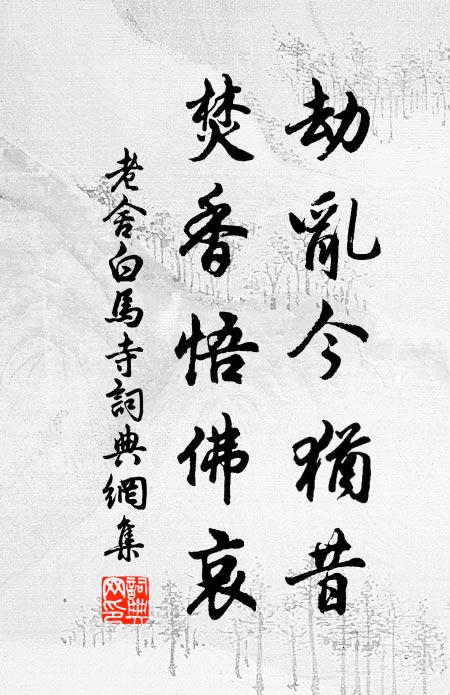 劫亂今猶昔
焚香悟佛哀
老舍白馬寺詞典網集
詞典網印